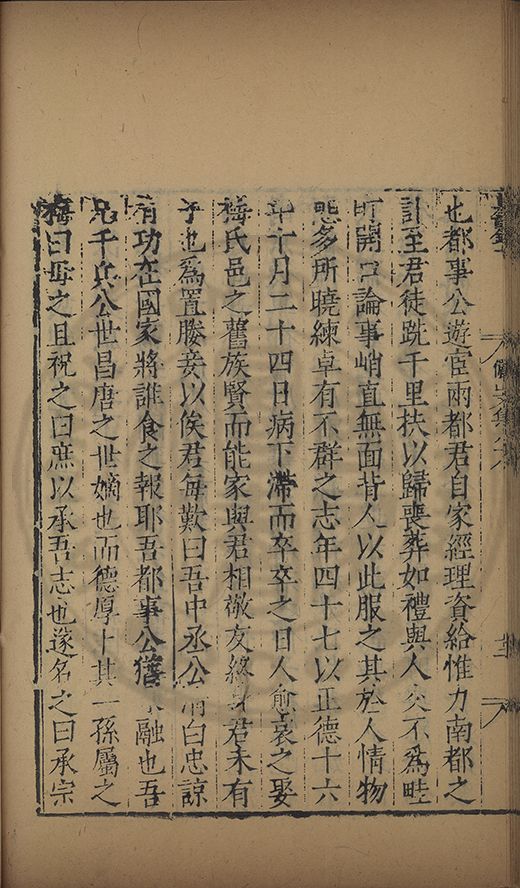 也都事公遊宦兩都君自家經理資給惟力南都之
訃至君徒跣千里扶以歸喪葬如禮與人交不為畦
町開口論事峭直無面背人以此服之其於人情物
態多所曉練卓有不群之志年四十七以正德十六
年十月二十四日病下滯而卒卒之日人愈哀之娶
梅氏邑之舊族賢而能家與君相敬友終身君未有
子也為置媵妾以俟君每歎曰吾中丞公清白忠諒
有功在國家將誰食之報耶吾都事公猶融也吾
兄千兵公世昌唐之世嫡也而德厚十其一孫屬之
梅曰毋之且祝之曰庶以承吾志也遂名之曰承宗